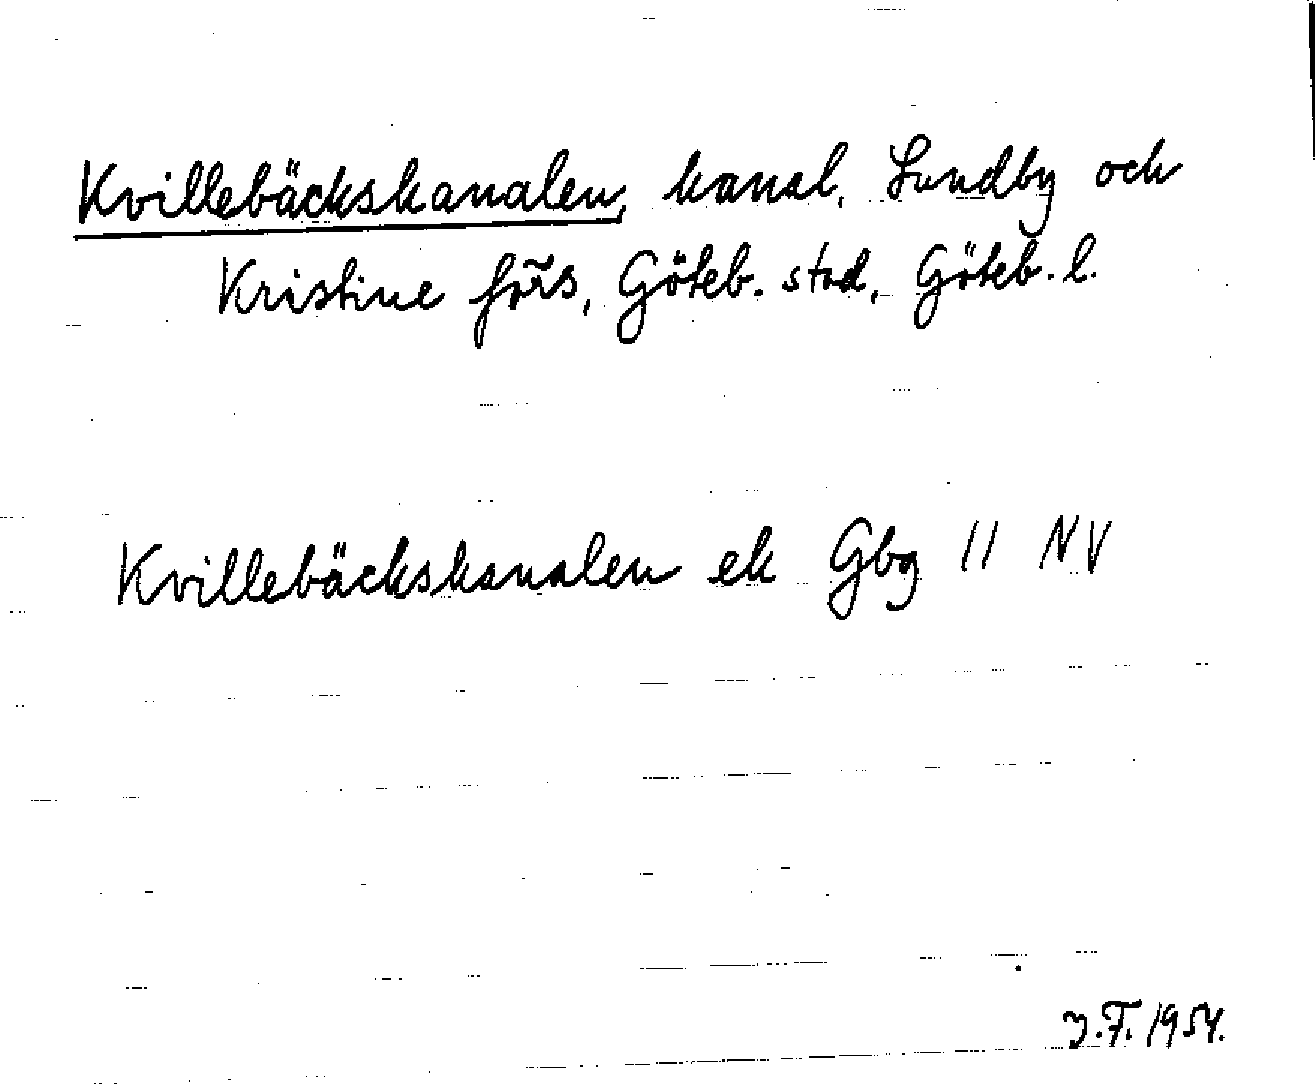 Kvillebäckskanalen, kanal, Lundby och
Kristine förs, Göteb. stad, Göteb. l.
Kvillebäckskanalen ek Gbg 11 NV
1954.